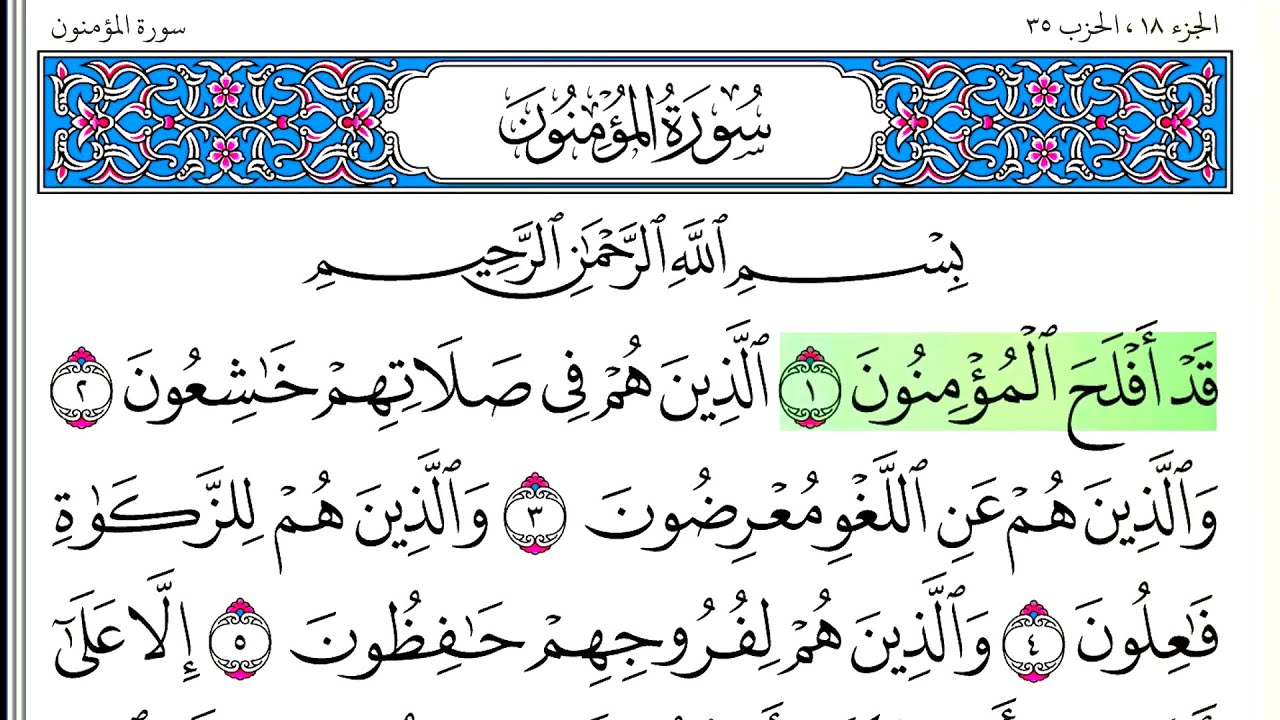 الجزء ١٨ ، الحزب ٣٥
سورة المؤمنون
سُورَةُ المُؤْمِنُونَ
بِسْمِ ٱللَّهِ ٱلرَّحْمَٰنِ ٱلرَّحِيمِ
قَدْ أَفْلَحَ ٱلْمُؤْمِنُونَ ١ ٱلَّذِينَ هُمْ فِى صَلَاتِهِمْ خَٰشِعُونَ ٢
وَٱلَّذِينَ هُمْ عَنِ ٱللَّغْوِ مُعْرِضُونَ ٣ وَٱلَّذِينَ هُمْ لِلزَّكَوٰةِ
فَٰعِلُونَ ٤ وَٱلَّذِينَ هُمْ لِفُرُوجِهِمْ حَٰفِظُونَ ٥ إِلَّا عَلَىٰٓ